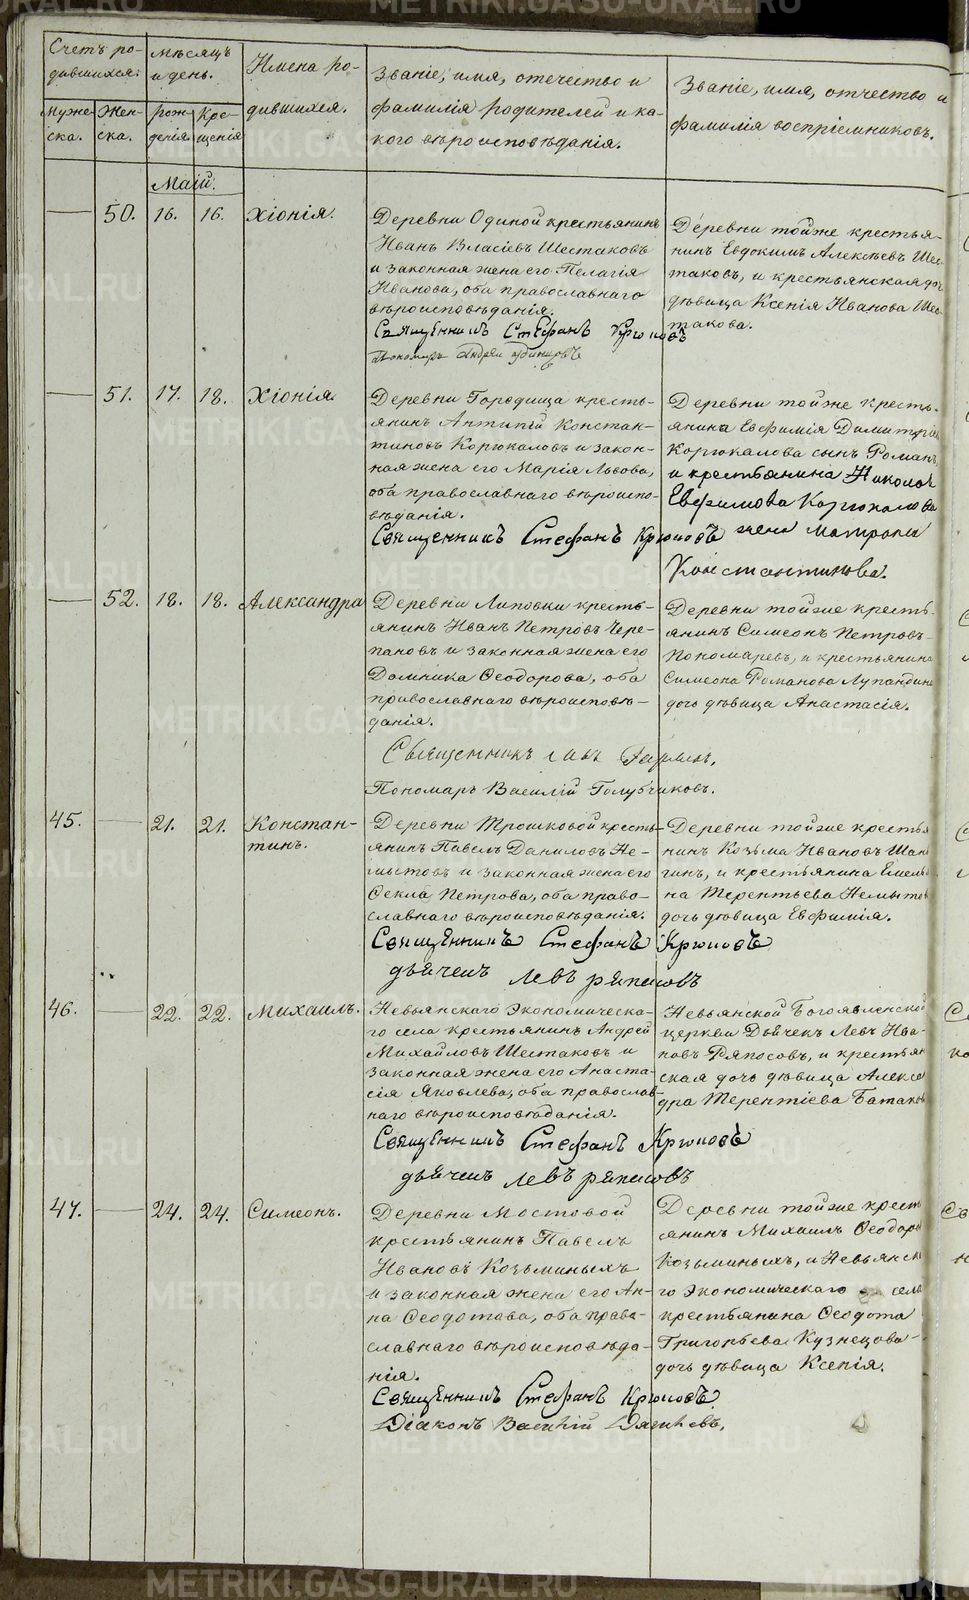 Счетъ ро-
дившихся.
Мѣсяцъ
и день.
Имена ро-
дившихся.
Званіе, имя, отечество и
фамилія родителей и ка-
кого вѣроисповѣданія.
Званіе, имя, отчество и
фамилія воспріемниковъ.
Муже-
ска.
Жен-
ска.
рож-
денія
Кре-
щенія
Маій.
50. 16. 16. Хіонія.
Деревни Одиной крестьянинъ
Иванъ Власіевъ Шестаковъ
и законная жена его Пелагія
Иванова, оба православнаго
вѣроисповѣданія.
Священникъ Стефанъ Крюковъ
Пономарь Андрей
Деревни тойже крестья-
нинъ Евдокимъ Алексѣевъ Шес-
таковъ, и крестьянская доч
дѣвица Ксенія Иванова Шес-
такова.
51. 17. 18. Хіонія.
Деревни Городища кресть-
янинъ Антипій Констан-
тиновъ Корюкаловъ и закон-
ная жена его Марія Львова,
оба православнаго вѣроиспо-
вѣданія.
Священникъ Стефанъ Крюковъ
Деревни тойже кресть-
янина Евфимія Димитріев
Корюкалова сынъ Романъ,
и крестьянина Николая
Евфимова Корюкалова
жена Матрона
Константинова.
52. 18. 18. Александра
Деревни Липовки кресть-
янинъ Иванъ Петровъ Чере-
пановъ и законная жена его
Домника Ѳеодорова, оба
православнаго вѣроисповѣ-
данія.
Священникъ
Пономарь Василій Голубчиковъ.
Деревни тойже кресть-
янинъ Симеонъ Петровъ
Пономаревъ, и крестьянина
Симеона Романова Лупандина
дочь дѣвица Анастасія.
45. 21. 21. Констан-
тинъ.
Деревни Трошковой кресть-
янинъ Павелъ Даниловъ Не-
мытовъ и законная жена его
Ѳекла Петрова, оба право-
славнаго вѣроисповѣданія.
Священникъ Стефанъ Крюковъ
дьячекъ Левъ Ряпасовъ
Деревни тойже крестья
нинъ Козьма Ивановъ Шан
гинъ, и крестьянина Емелья
на Терентьева Немытов
дочь дѣвица Евфимія.
46. 22. 22. Михаилъ.
Невьянскаго Экономическа-
го села крестьянинъ Андрей
Михайловъ Шестаковъ и
законная жена его Анаста-
сія Яковлева, оба православ-
наго вѣроисповѣданія.
Священникъ Стефанъ Крюковъ
дьячекъ Левъ Ряпасовъ
Невьянской Богоявленской
церкви Дьячекъ Левъ Ива-
новъ Ряпосовъ, и крестьян
ская дочь дѣвица Алексан
дра Терентіева Батаков
47. 24. 24. Симеонъ.
Деревни Мостовой
крестьянинъ Павелъ
Ивановъ Козьминыхъ
и законная жена его Ан-
на Ѳеодотова, оба право-
славнаго вѣроисповѣда-
нія.
Священникъ Стефанъ Крюковъ
Діаконъ Василій Дягилевъ.
Деревни тойже крест
янинъ Михаилъ Ѳеодоро
Козьминыхъ, и Невьянска
го экономическаго села
крестьянина Ѳеодота
Григорьева Кузнецова
дочь дѣвица Ксенія.
METRIKI.GASO-URAL.RU